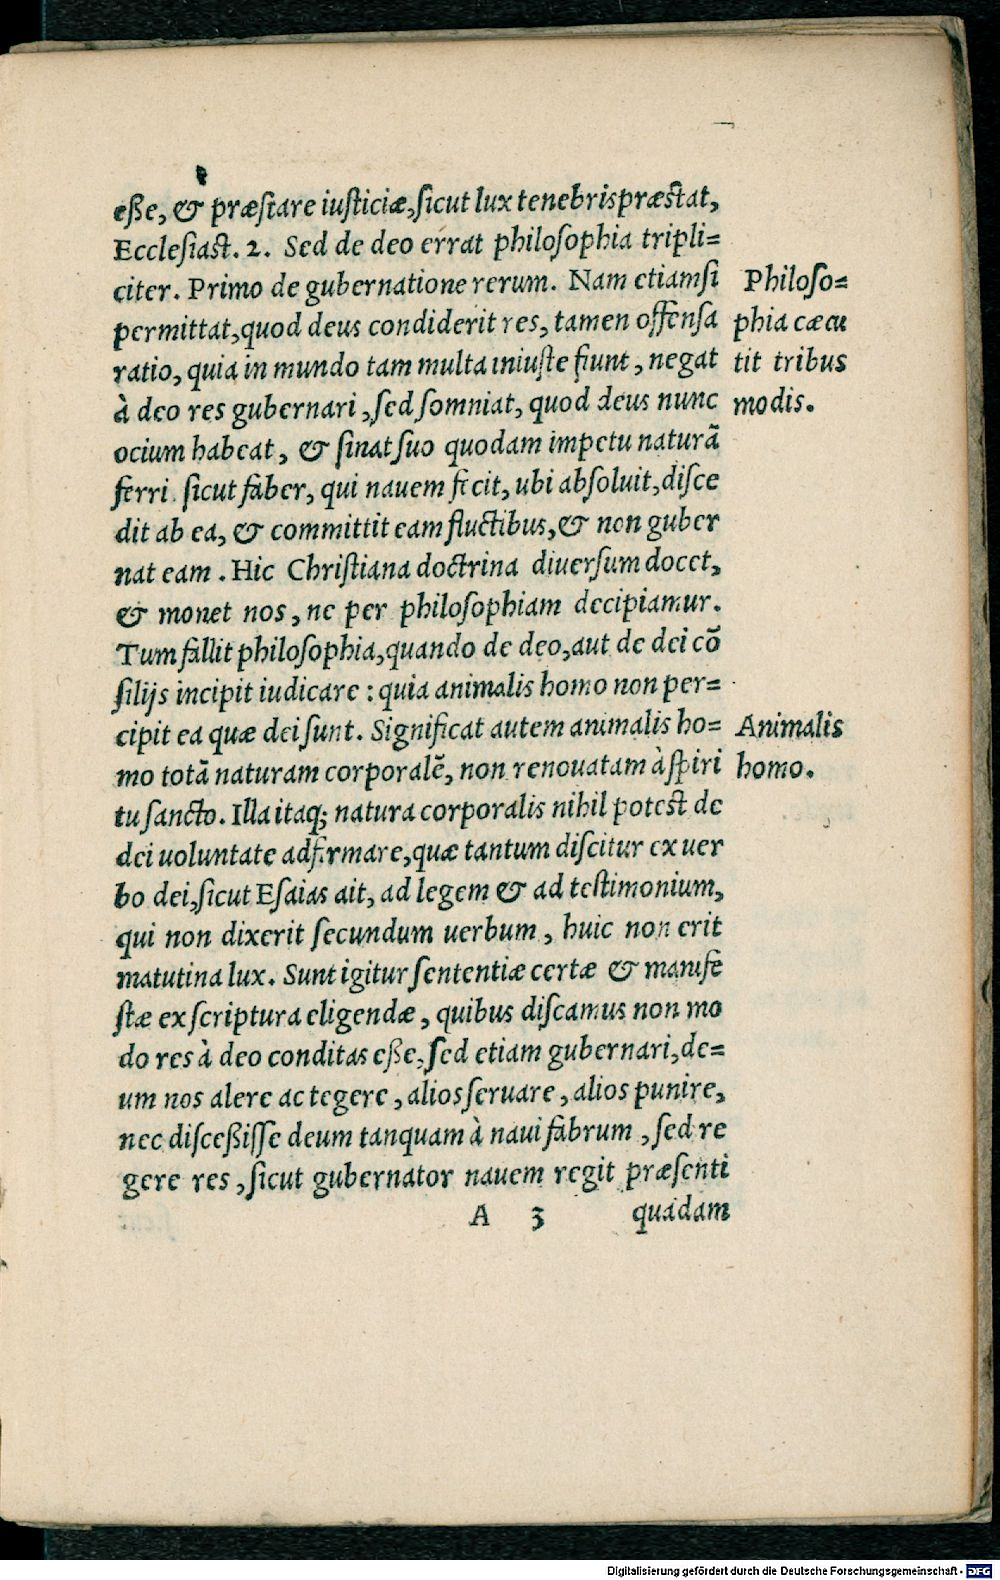 eße, & præstare iusticiæ, sicut lux tenebris præstat,
Ecclesiast. 2. Sed de deo errat philosophia tripli=
citer. Primo de gubernatione rerum. Nam etiamsi
permittat, quod deus condiderit res, tamen offensa
ratio, quia in mundo tam multa iniuste fiunt, negat
à deo res gubernari, sed somniat, quod deus nunc
ocium habeat, & sinat suo quodam impetu naturã
ferri. sicut faber, qui nauem fecit, ubi absoluit, disce
dit ab ea, & committit eam fluctibus, & non guber
nat eam. Hic Christiana doctrina diuersum docet,
& monet nos, ne per philosophiam decipiamur.
Tum fallit philosophia, quando de deo, aut de dei cõ
silijs incipit iudicare: quia animalis homo non per=
cipit ea quæ dei sunt. Significat autem animalis ho=
mo totã naturam corporalẽ, non renouatam à spiri
tu sancto. Illa itaq; natura corporalis nihil potest de
dei uoluntate adfirmare, quæ tantum discitur ex uer
bo dei, sicut Esaias ait, ad legem & ad testimonium,
qui non dixerit secundum uerbum, huic non erit
matutina lux. Sunt igitur sententiæ certæ & manife
stæ ex scriptura eligendæ, quibus discamus non mo
do res à deo conditas eße, sed etiam gubernari, de=
um nos alere ac tegere, alios seruare, alios punire,
nec disceßisse deum tanquam à naui fabrum, sed re
gere res, sicut gubernator nauem regit præsenti
A 3 quadam
Philoso=
phia cæcu
tit tribus
modis.
Animalis
homo.
Digitalisierung gefördert durch die Deutsche Forschungsgemeinschaft - DFG